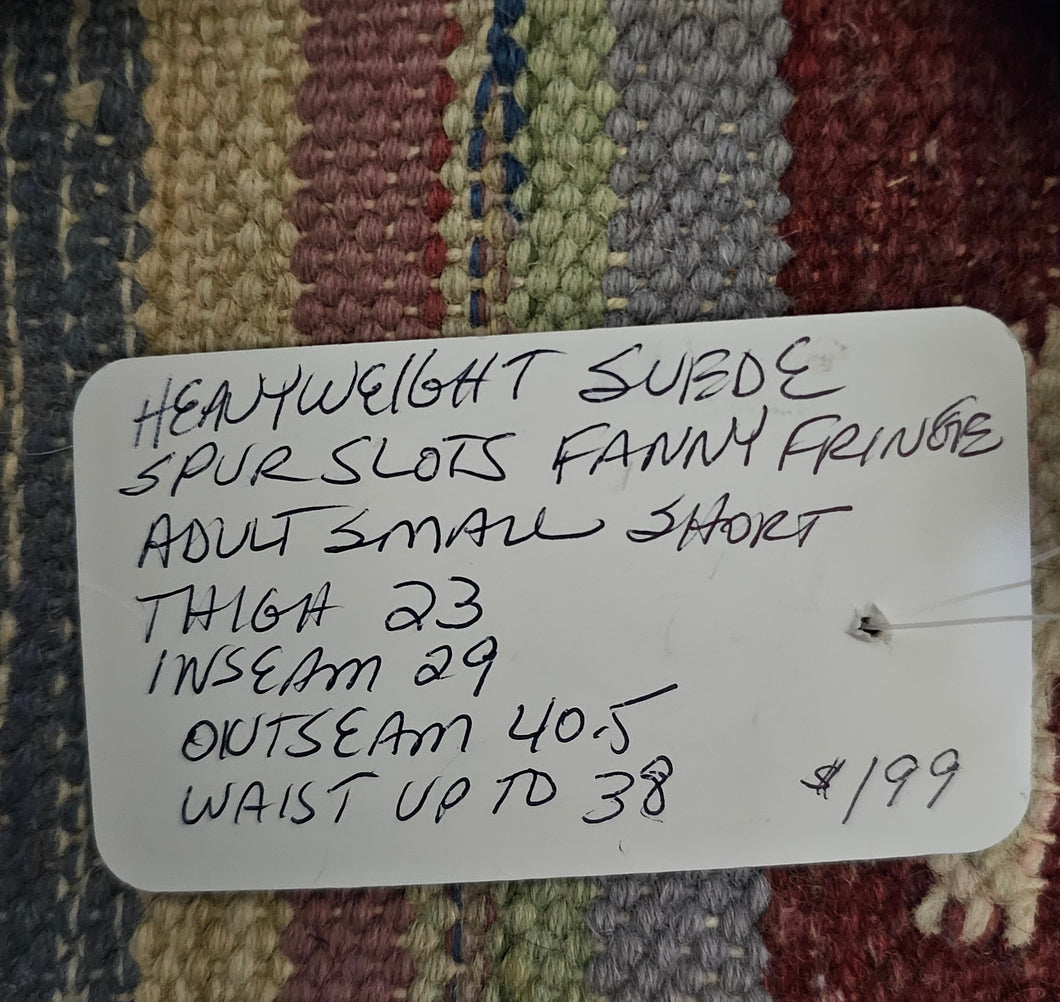 HEAVYWEIGHT SUEDE
SPUR SLOTS FANNY FRINGE
ADULT SMALL SHORT
THIGH 23
INSEAM 29
OUTSEAM 40.5
WAIST UP TO 38 $199